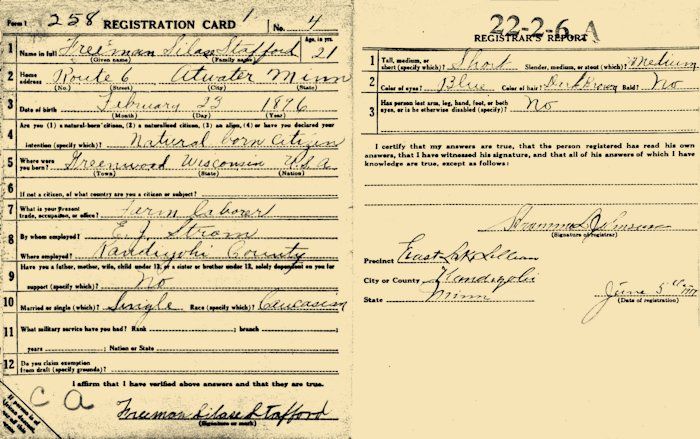 Form 1 258 REGISTRATION CARD 1 No. 4
1 Name in full Freeman Silase Stafford Age, in yrs. 21
(Given name) (Family name)
2 Home address Route 6 Atwater Minn
(No.) (Street) (City) (State)
3 Date of birth February 23 1896
(Month) (Day) (Year)
4 Are you (1) a natural-born citizen, (2) a naturalized citizen, (3) an alien, (4) or have you declared your
intention (specify which)? Natural born Citizen
5 Where were you born? Greenwood Wisconsin U.S.A.
(Town) (State) (Nation)
6 If not a citizen, of what country are you a citizen or subject?
7 What is your present trade, occupation, or office? Farm laborer
8 By whom employed? E. J. Strom
Where employed? Kandiyohi County
9 Have you a father, mother, wife, child under 12, or a sister or brother under 12, solely dependent on you for
support (specify which)? No
10 Married or single (which)? Single Race (specify which)? Caucasian
11 What military service have you had? Rank ; branch
years ; Nation or State
12 Do you claim exemption from draft (specify grounds)?
I affirm that I have verified above answers and that they are true.
C A
Freeman Silase Stafford
(Signature or mark)
If person is of
22-2-6 A
REGISTRAR'S REPORT
1 Tall, medium, or short (specify which)? Short Slender, medium, or stout (which)? Medium
2 Color of eyes? Blue Color of hair? Dark Brown Bald? No
3 Has person lost arm, leg, hand, foot, or both eyes, or is he otherwise disabled (specify)? No
I certify that my answers are true, that the person registered has read his own
answers, that I have witnessed his signature, and that all of his answers of which I have
knowledge are true, except as follows:
(Signature of registrar)
Precinct East Lake Lillian
City or County Kandiyohi
State Minn
June 5th 1917
(Date of registration)